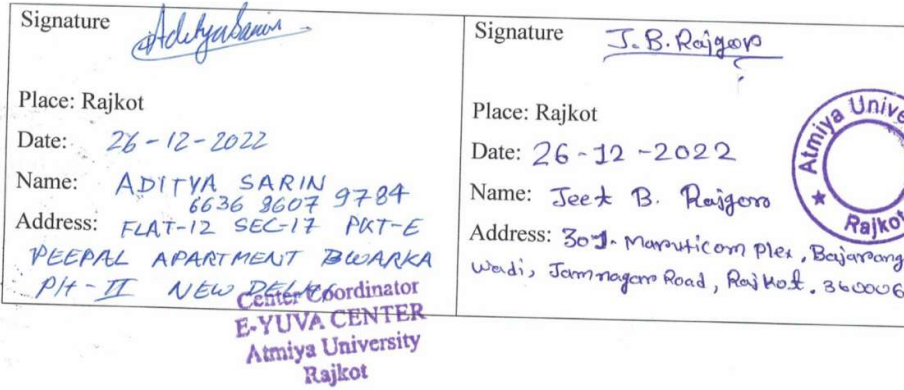 Signature AdityaSarin
Place: Rajkot
Date: 26-12-2022
Name: ADITYA SARIN
6636 8607 9784
Address: FLAT-12 SEC-17 PKT-E
PEEPAL APARTMENT DWARKA
PH-II NEW DELHI
Center Coordinator
E-YUVA CENTER
Atmiya University
Rajkot
Signature J.B.Rajgor
Place: Rajkot
Date: 26-12-2022
Name: Jeet B. Rajgor
Address: 301. Maruticomplex, Bajarang
Wadi, Jamnagar Road, Rajkot. 360006
Atmiya Unive
★ Rajkot